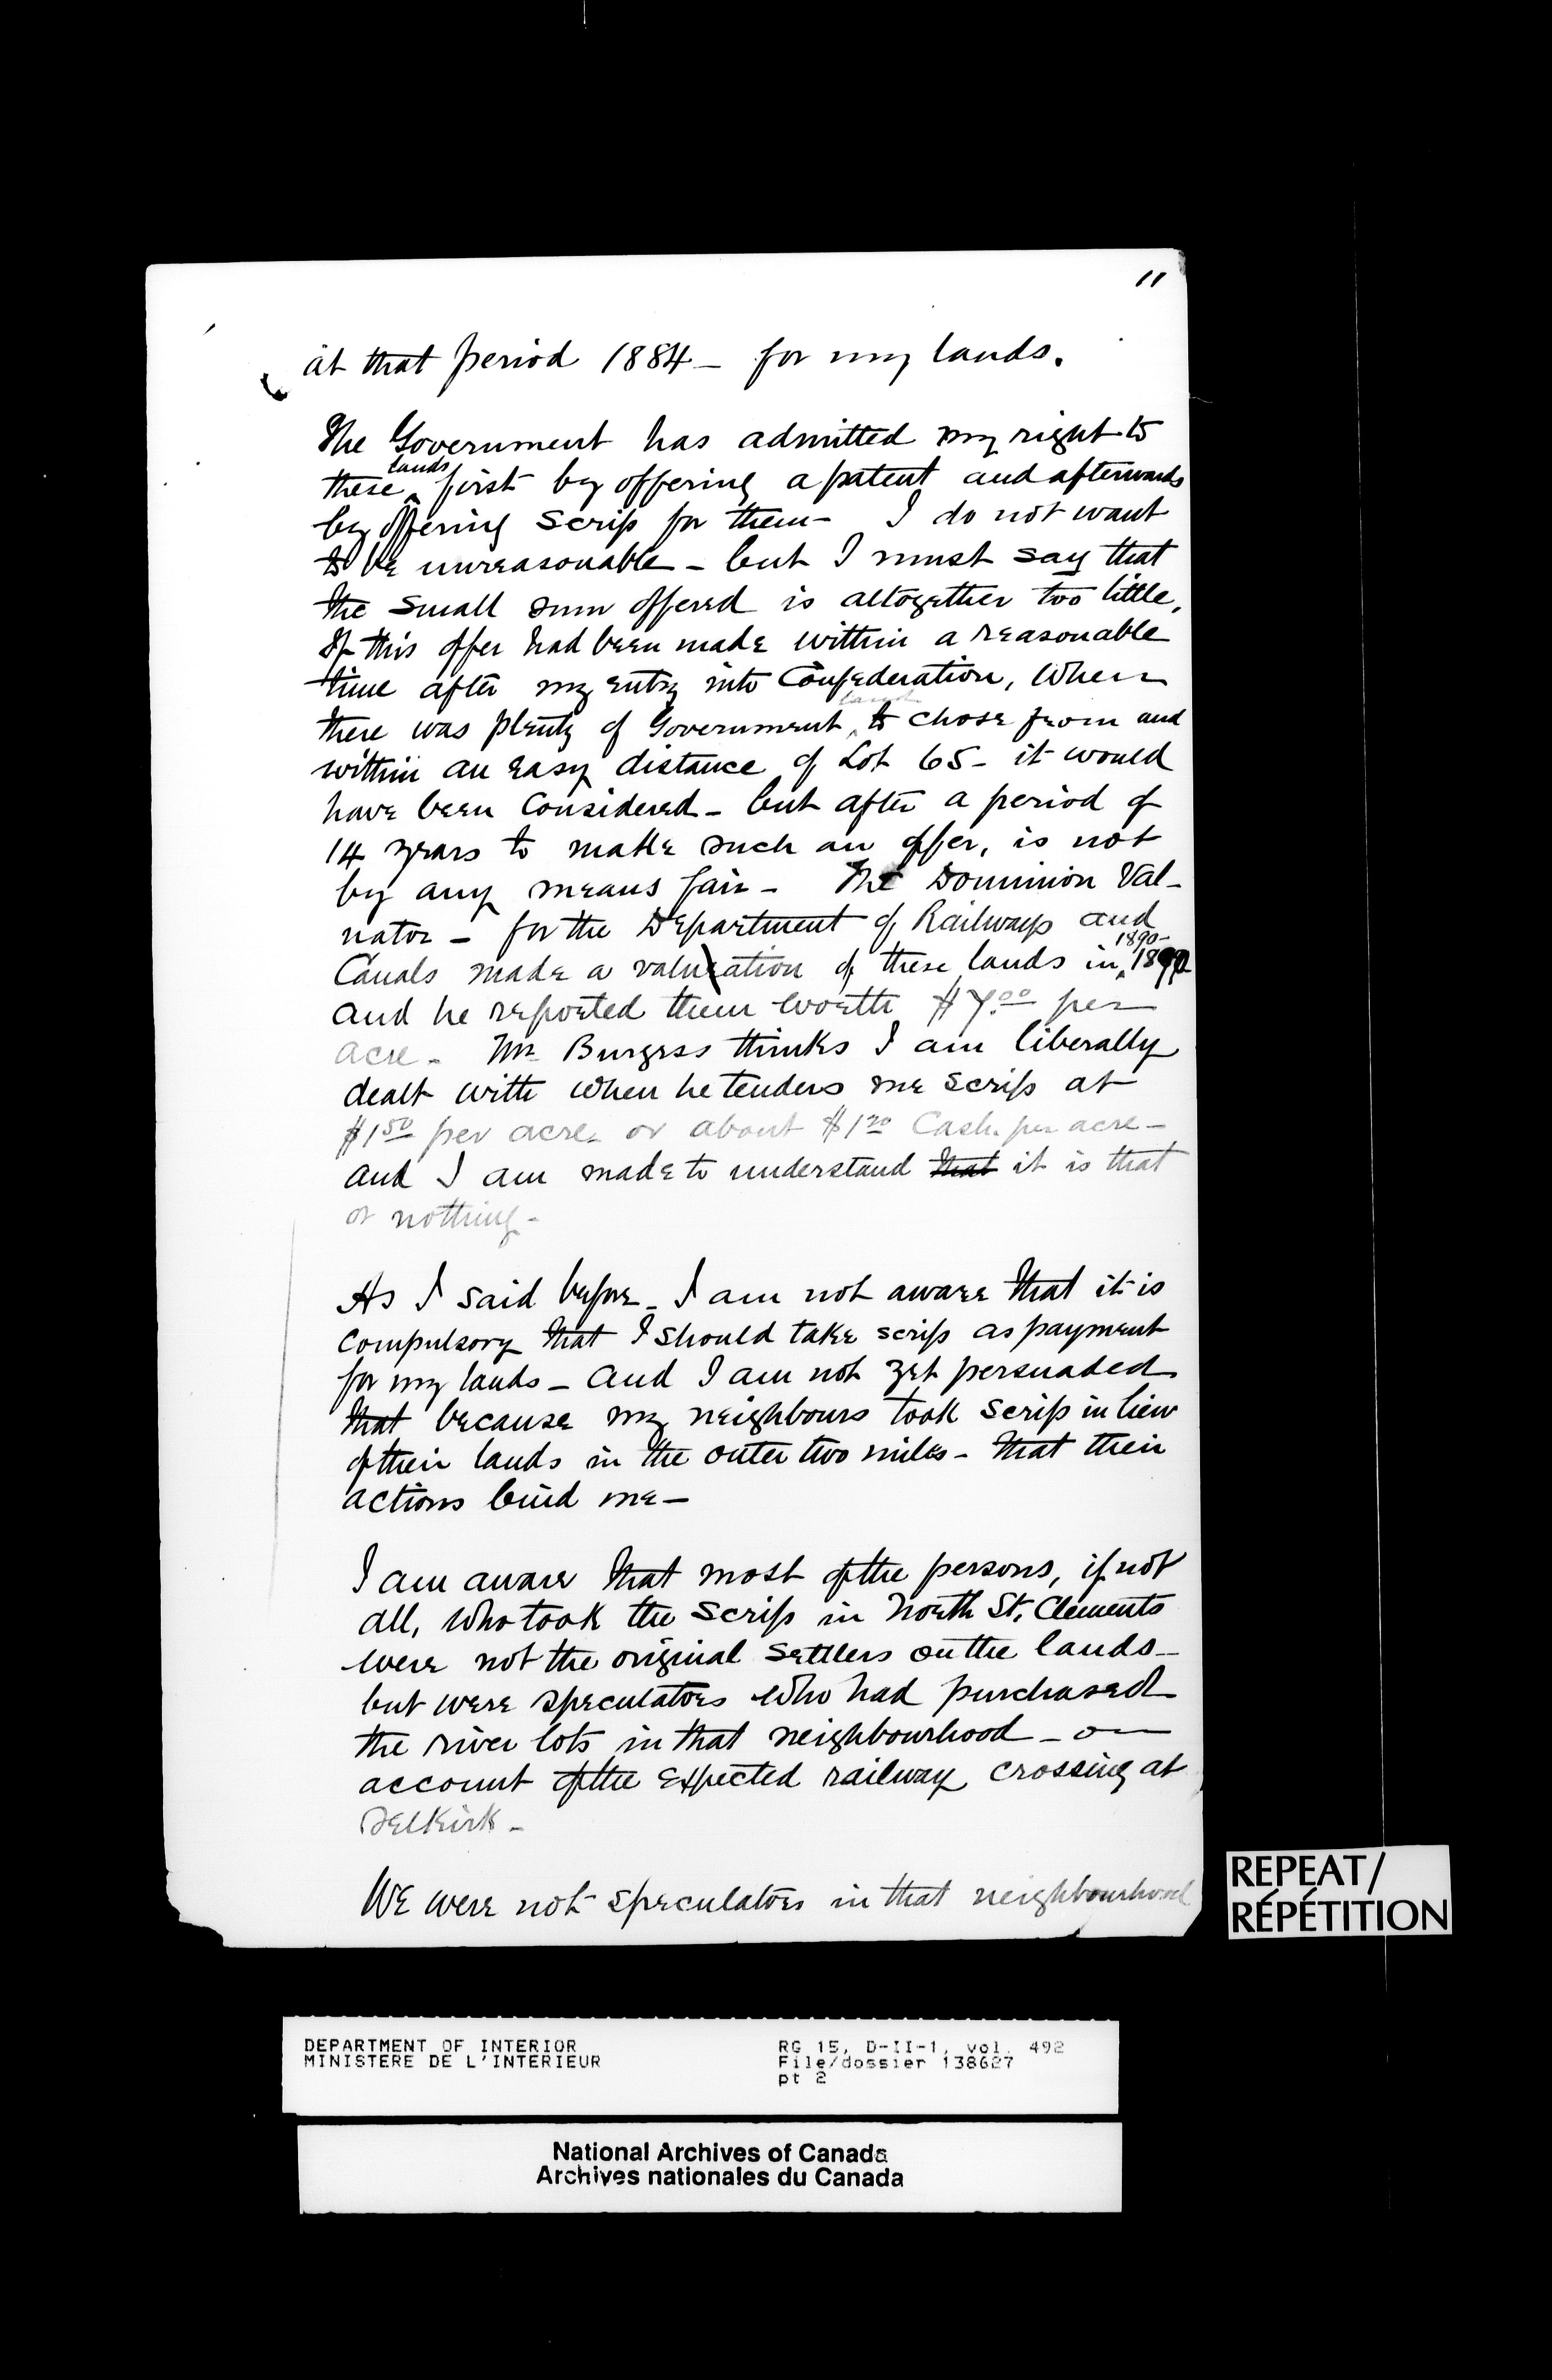 11
at that period 1884 – for my lands.
The Government has admitted my right to
these lands first by offering a patent and afterwards
by offering Scrip for them – I do not want
to be unreasonable – but I must say that
the small sum offered is altogether too little,
If this offer had been made within a reasonable
time after my entry into Confederation, when
there was plenty of Government land to chose from and
within an easy distance of Lot 65 – it would
have been Considered – but after a period of
14 years to make such an offer, is not
by any means fair – The Dominion Val-
uator – for the Department of Railways and
Canals made a valuation of these lands in 1890 –
and he reported them worth $7.00 per
acre – Mr Burgess thinks I am liberally
dealt with when he tenders me scrip at
$1 50 per acre or about $1 20 Cash per acre –
and I am made to understand that it is that
or nothing –
As I said before – I am not aware that it is
Compulsory that I should take scrip as payment
for my lands – and I am not yet persuaded
that because my neighbours took scrip in lieu
of their lands in the outer two miles – that their
actions bind me –
I am aware that most of the persons, if not
all, who took the scrip in North St. Clements
were not the original settlers on the lands –
but were speculators who had purchased
the river lots in that neighbourhood – on
account of the expected railway crossing at
Selkirk –
We were not speculators in that neighbourhood
REPEAT/
RÉPÉTITION
DEPARTMENT OF INTERIOR RG 15, D-II-1, vol. 492
MINISTERE DE L'INTERIEUR File/dossier 138627
pt 2
National Archives of Canada
Archives nationales du Canada